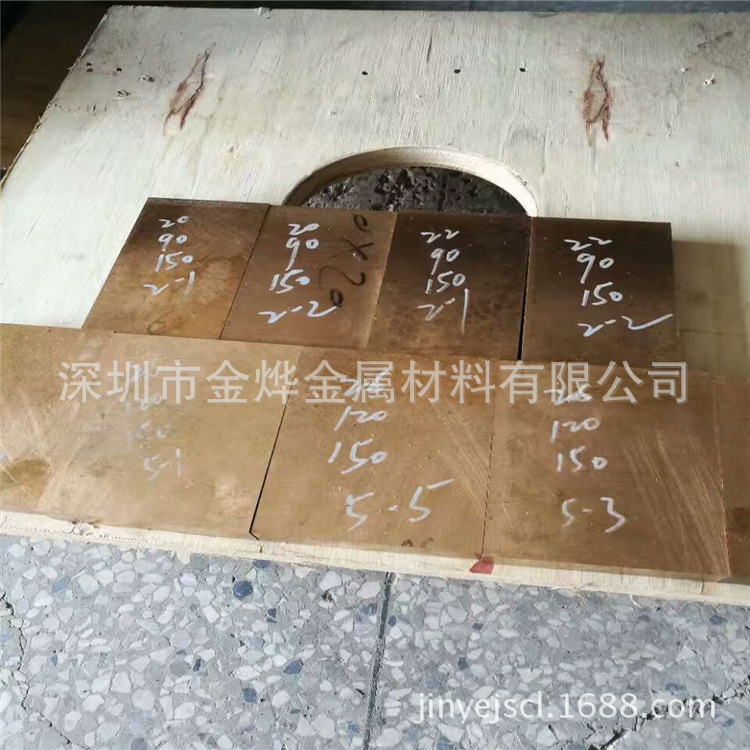 20
90
150
2-1
20
90
150
2-2
22
90
150
2-1
22
90
150
2-2
深圳市金烨金属材料有限公司
120
5-1
120
150
5-5
120
150
5-3
jinyejscl.1688.com